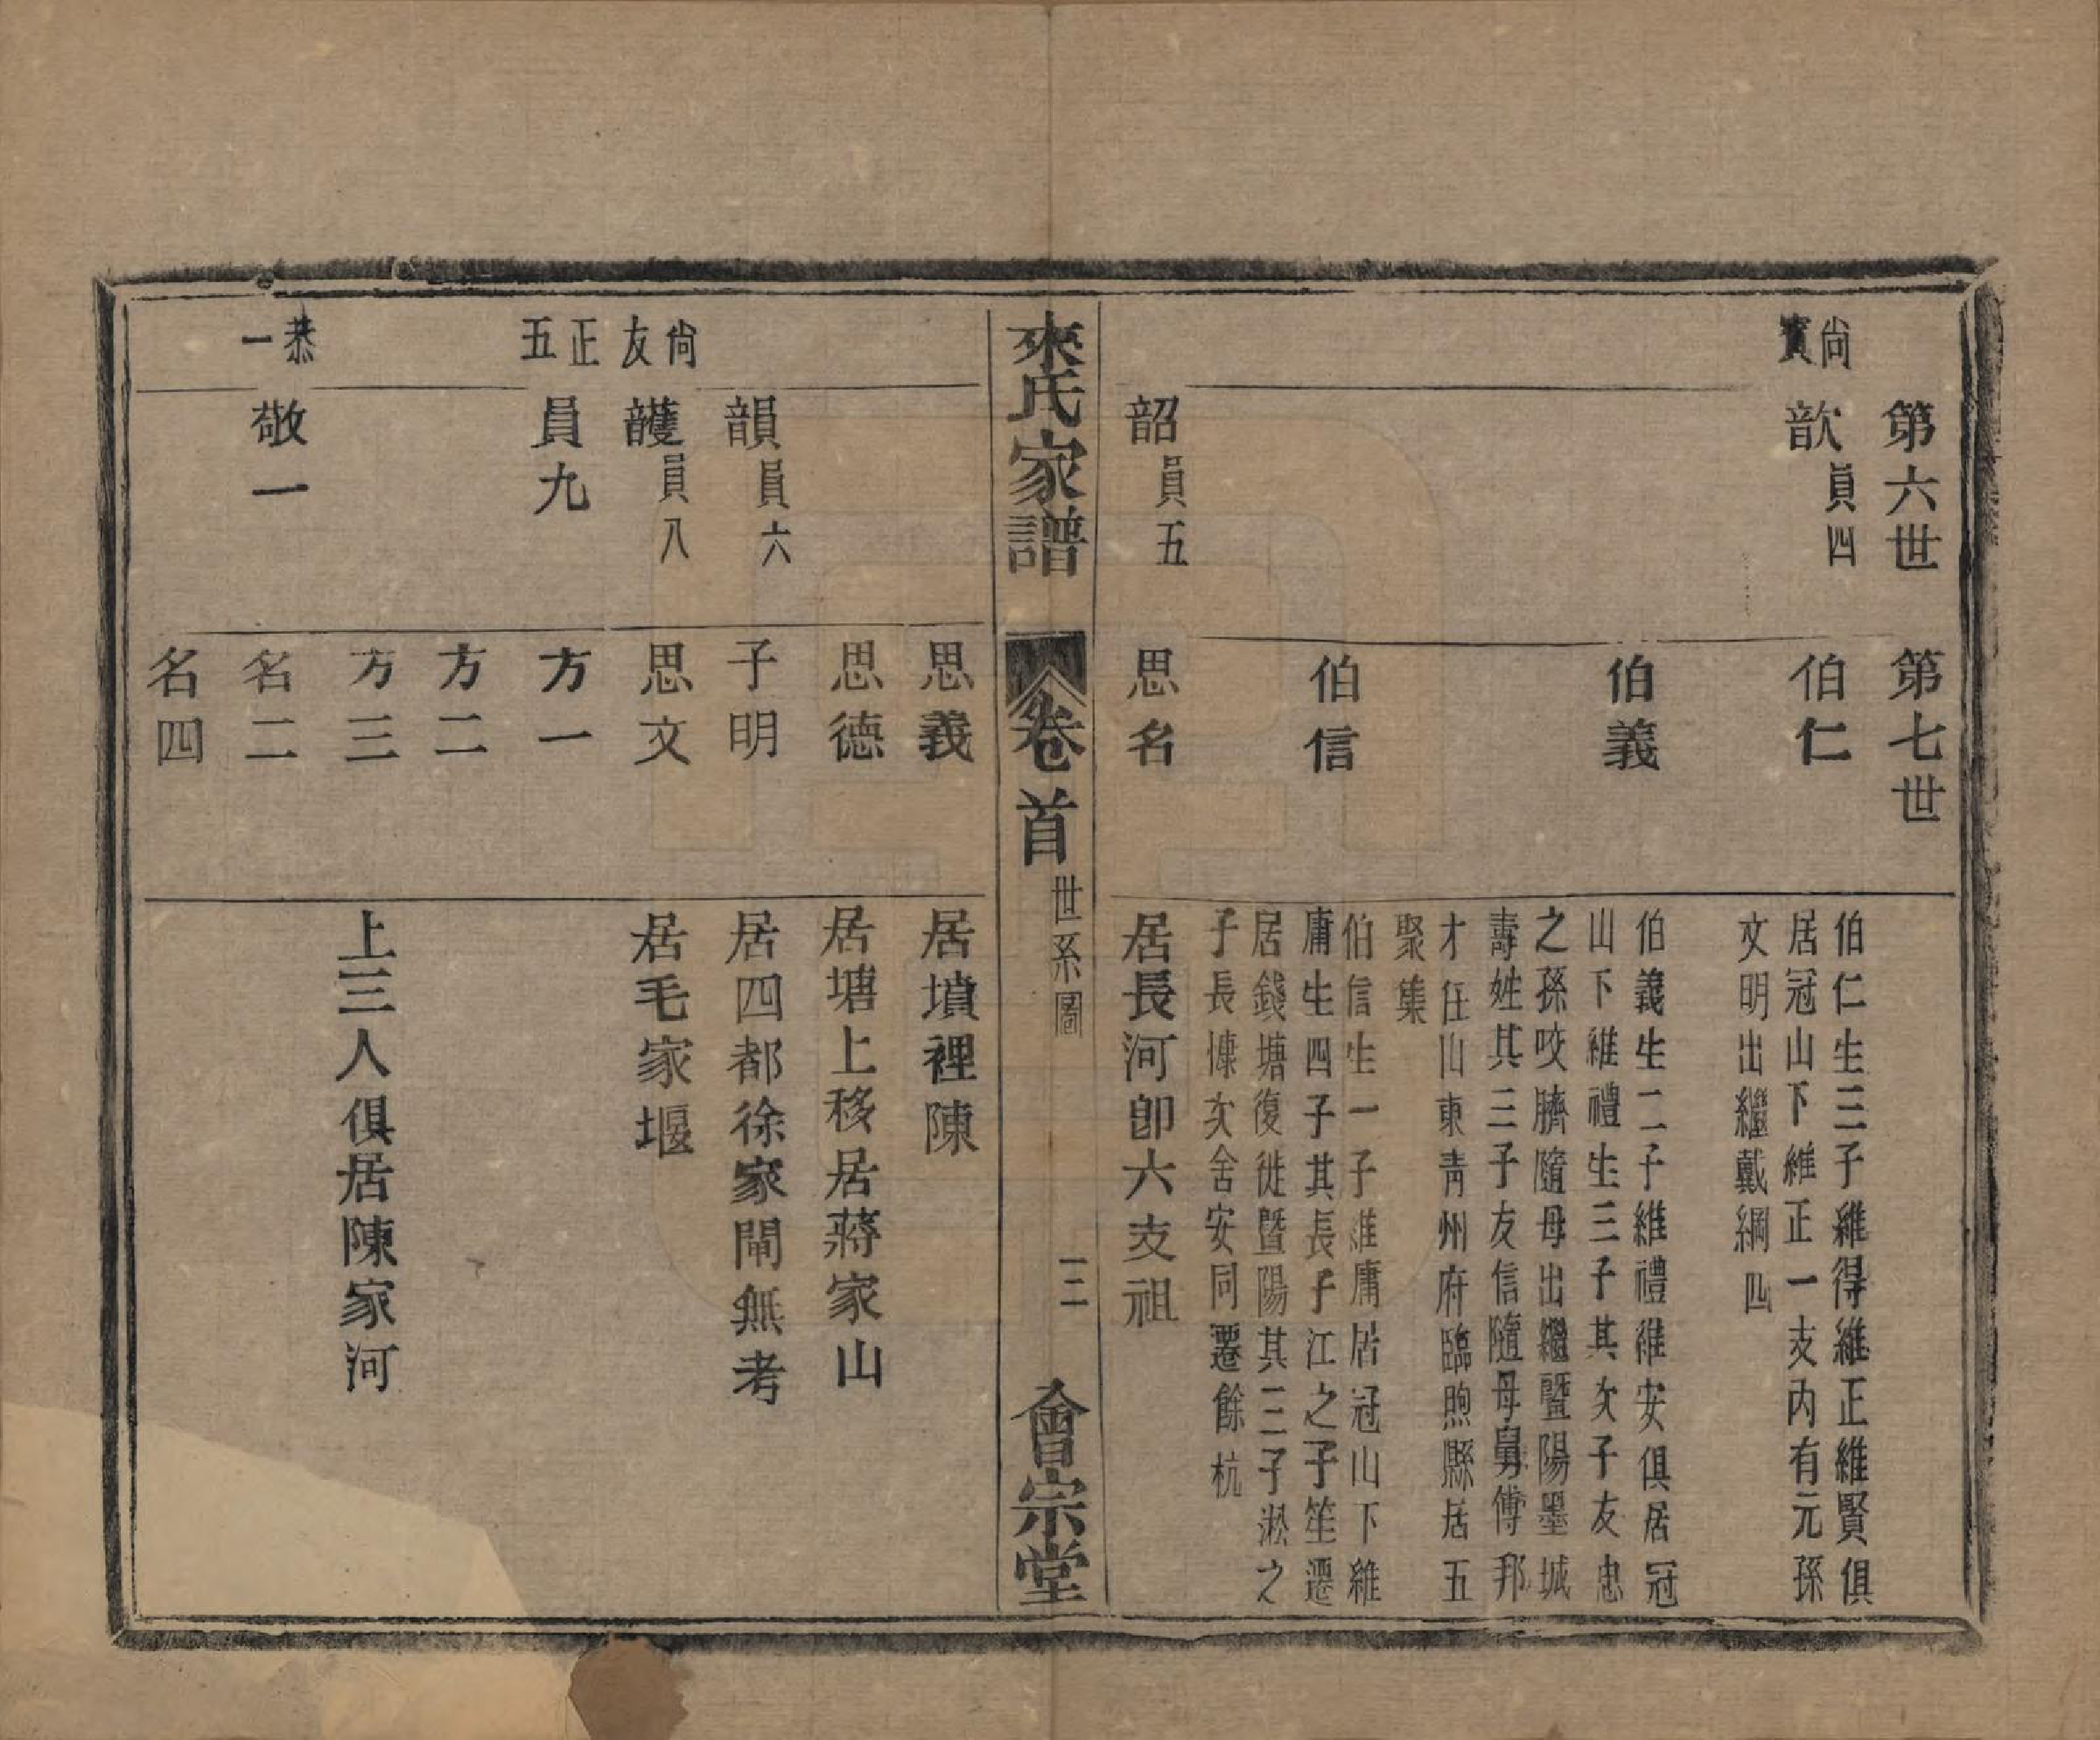 第六世
第七世
尙賓
歆 員四
伯仁
伯仁生三子維得維正維賢俱
居冠山下維正一支内有元孫
文明出繼戴綱四
伯義
伯義生二子維禮維安俱居冠
山下維禮生三子其次子友忠
之孫咬臍隨母出繼暨陽墨城
壽姓其三子友信隨母舅傅邦
才任山東靑州府臨煦縣居五
聚集
伯信
伯信生一子維庸居冠山下維
庸生四子其長子江之子笙遷
居錢塘復徙暨陽其三子淞之
子長慷次舍安同遷餘杭
韶 員五
思名
居長河卽六支祖
來氏家譜
卷首
世系圖
三
會宗堂
思義
居墳裡陳
思德
居塘上移居蔣家山
韻 員六
子明
居四都徐家閘無考
尙友
頀 員八
思文
居毛家堰
正五
員九
方一
方二
方三
上三人俱居陳家河
恭一
敬一
名二
名四